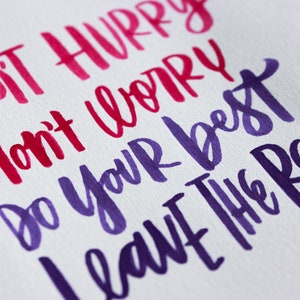 HURRY
Don't WORRY
Do YOUR best
LEAVE THE